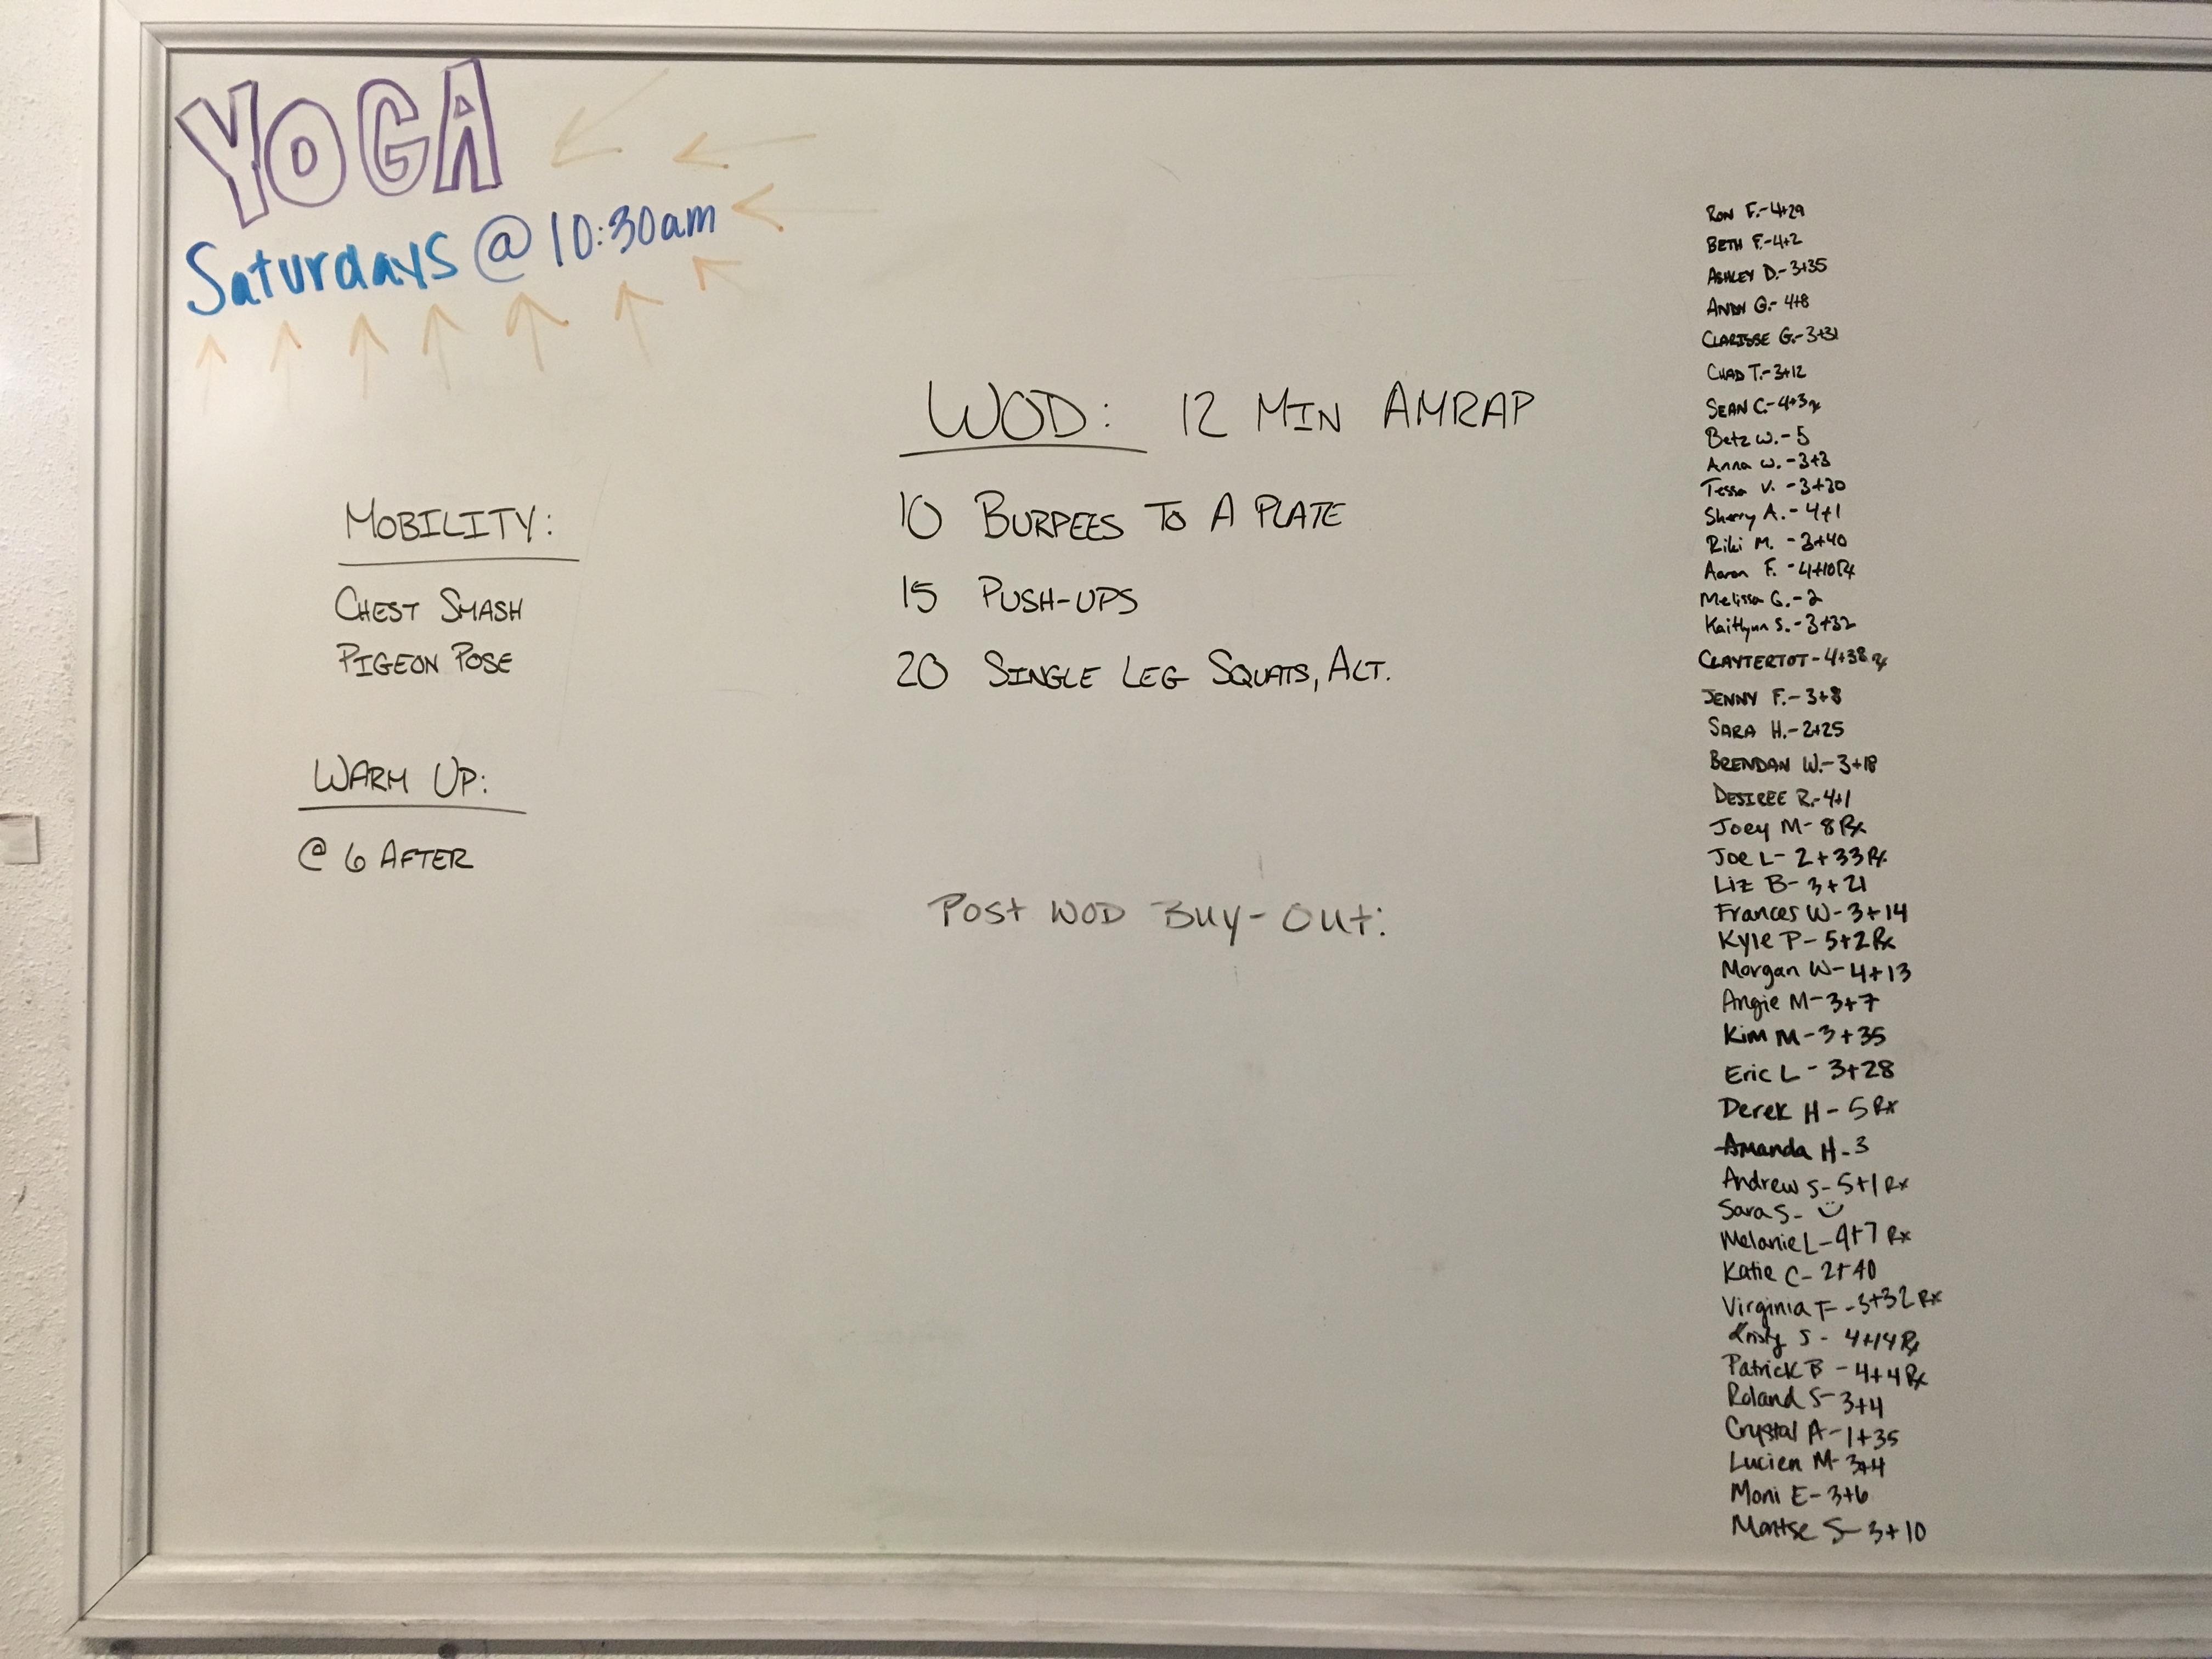 YOGA
Saturdays @ 10:30am
MOBILITY:
CHEST SMASH
PIGEON POSE
WARM UP:
@ 6 AFTER
WOD: 12 MIN AMRAP
10 BURPEES TO A PLATE
15 PUSH-UPS
20 SINGLE LEG SQUATS, ALT.
Post WOD Buy-Out:
RON F.- 4+29
BETH F.- 4+2
ASHLEY D.- 3+35
ANDY G.- 4+8
CLARISSE G.- 3+31
CHAD T.- 3+12
SEAN C.- 4+3 Rx
Betz W.- 5
Anna W. - 3+3
Tessa V. - 3+20
Sherry A. - 4+1
Riki M. - 3+40
Aaron F. - 4+10 Rx
Melissa G. - 2
Kaitlynn S. - 3+32
CLAYTERTOT - 4+38 Rx
JENNY F.- 3+8
SARA H.- 2+25
BRENDAN W.- 3+18
DESIREE R.- 4+1
Joey M- 8 Rx
Joe L- 2+33 Rx
Liz B- 3+21
Frances W- 3+14
Kyle P- 5+2 Rx
Morgan W- 4+13
Angie M- 3+7
Kim M- 3+35
Eric L - 3+28
Derek H - 5 Rx
Amanda H - 3
Andrew S- 5+1 Rx
Sara S-
Melanie L- 4+7 Rx
Katie C- 2+40
Virginia F - 3+32 Rx
Kristy S - 4+14 Rx
Patrick B - 4+4 Rx
Roland S- 3+4
Crystal A- 1+35
Lucien M- 3+4
Moni E- 3+6
Montse S- 3+10